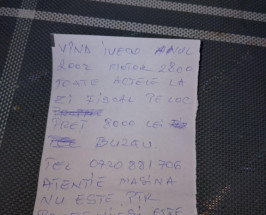 VIND IVECO ANUL
2002 MOTOR 2800
TOATE ACTELE LA
ZI FISCAL PE LOC
PRET 8000 LEI
BUZAU
TEL 0720881706
ATENTIE MASINA
NU ESTE TIR
ESTE